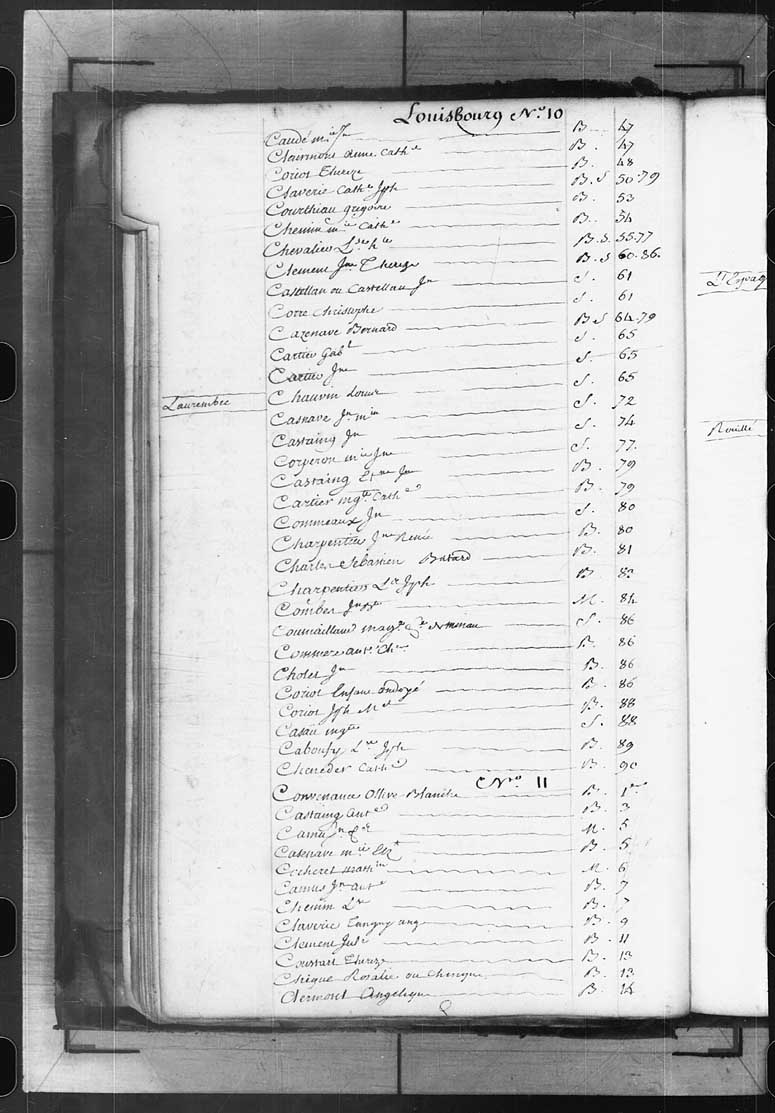 Louisbourg N.º 10
Caudé m.ie Jn B. 47
Clairmont Anne Cath.e B. 47
Coriot Thereze B. 48
Claverie Cath.e Jph B. S 50.79
Courthiau gregoire B. 53
Chemin m.ie Cath.e B. 54
Chevalier B. S. 55.77
Clement J.ne Thereze B. S 60.86.
Castellan ou Castellau Jn S. 61
Corre christophe S. 61
Cazenave Bernard B S 64.79
Cartier Gab.l S. 65
Cartier J.ne S. 65
Chauvin Louise S. 65
Laurembec
Casnave Jn m.in S. 72
Castaing Jn S. 74
Corperon m.ie J.ne S. 77.
Castaing Et.ne Jn B. 79
Cartier mg.te Cath.e B. 79
Commeaux Jn S. 80
Charpentier J.ne Renée B. 80
Charles Sebastien Batard B. 81
Charpentier Jph B 83
Combes M. 84
S. 86
Commere ant.e B. 86
Cholet Jn B. 86
Coriot Enfant ondoyé B. 86
Coriot Jph M.el B. 88
Casau mg.te S. 88
Jph B. 89
Cath.e B. 90
N.º 11
Convenance Olive Blanche B. 1.er
Castaing ant.e B. 3
Camu Jn M. 5
Casenave m.ie B. 5
Cocheret math.in M. 6
Camus Jn ant.e B. 7
Chemin B. 7
Claverie Tanguy ang. B. 9
Clement Jul. B. 11
Coustart Thereze B. 13
Chique Rosalie ou chinque B. 13
Clermont Angelique B. 14
Rouillé